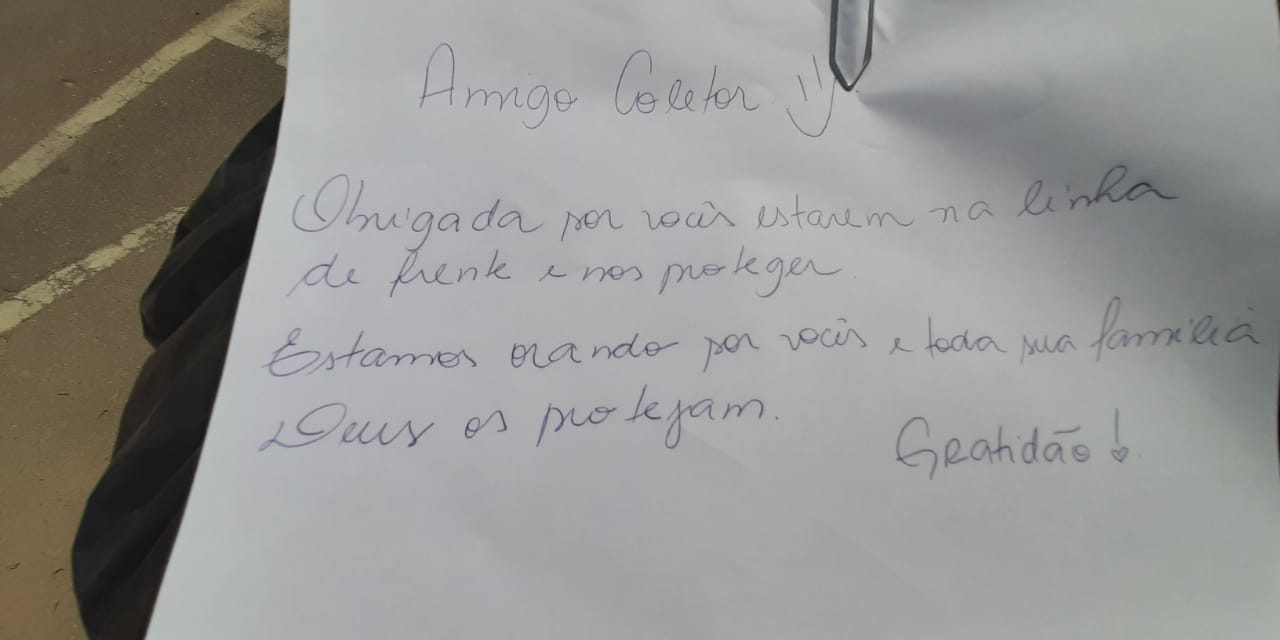 Amigo Coletor
Obrigada por vocês estarem na linha
de frente e nos proteger.
Estamos orando por vocês e toda sua familia
Deus os protejam.
Gratidão!